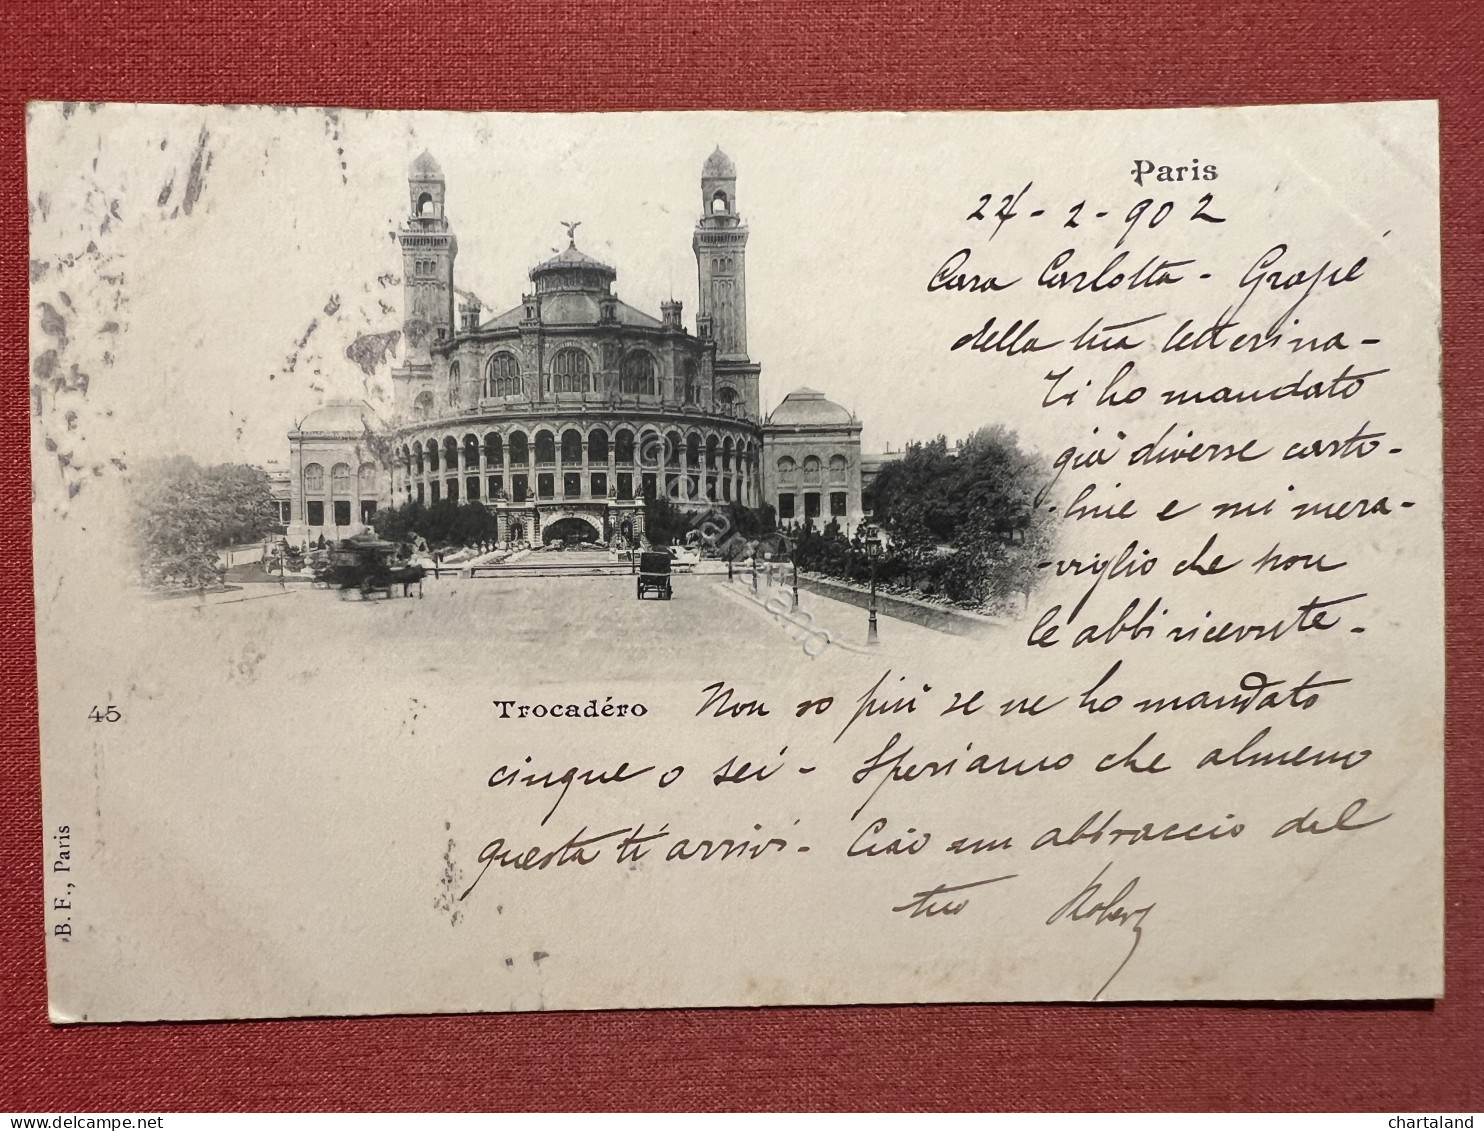 Paris
24-2-902
Cara Carlotta - Grazie
della tua letterina -
Ti ho mandato
già diverse carto-
line e mi mera-
-viglio che non
le abbi ricevute -
Trocadéro Non so più se ne ho mandato
cinque o sei - Speriamo che almeno
questa ti arrivi - Ciao un abbraccio del
tuo Robert
45
B. F., Paris
© chartaland
chartaland.com